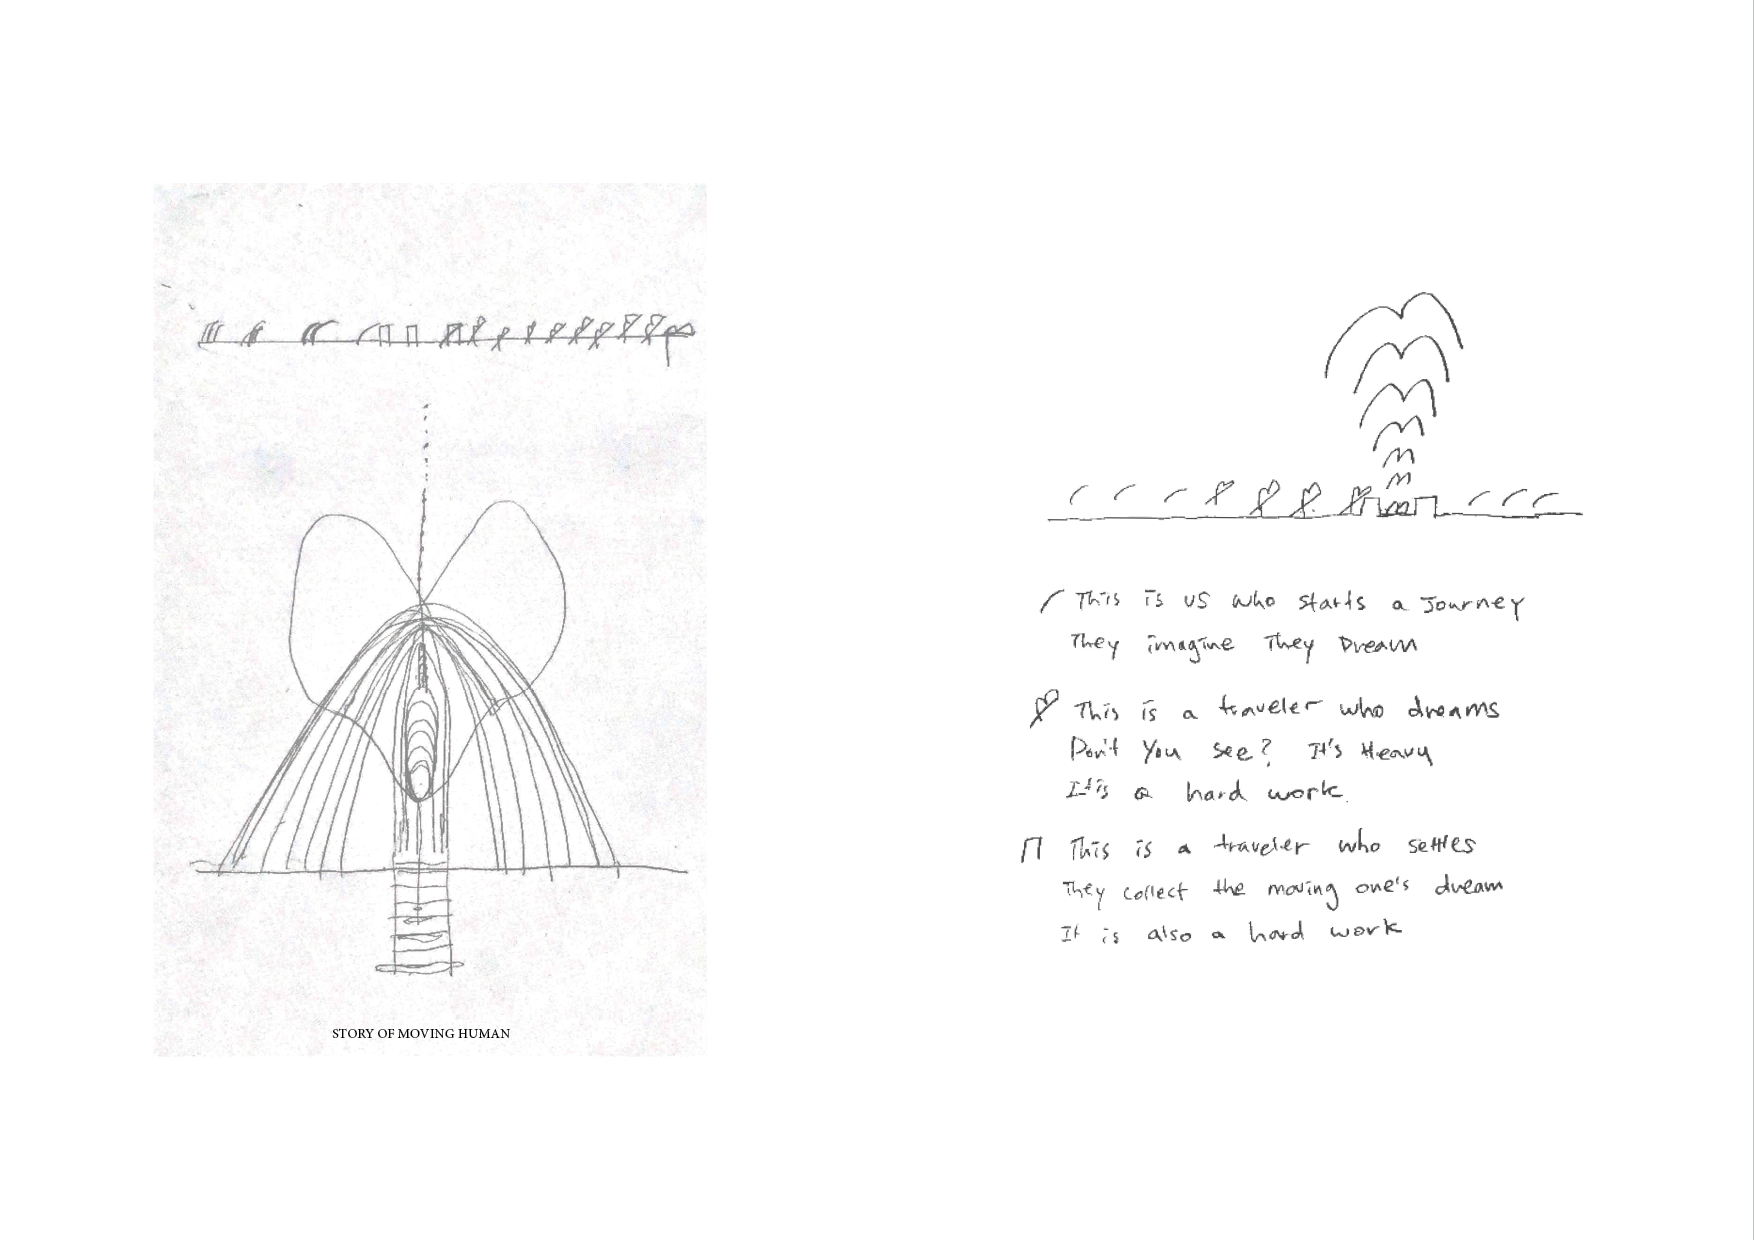 STORY OF MOVING HUMAN
This is us who starts a Journey
They imagine They Dream
This is a traveler who dreams
Don't You see? It's Heavy
It is a hard work.
This is a traveler who settles
They collect the moving one's dream
It is also a hard work